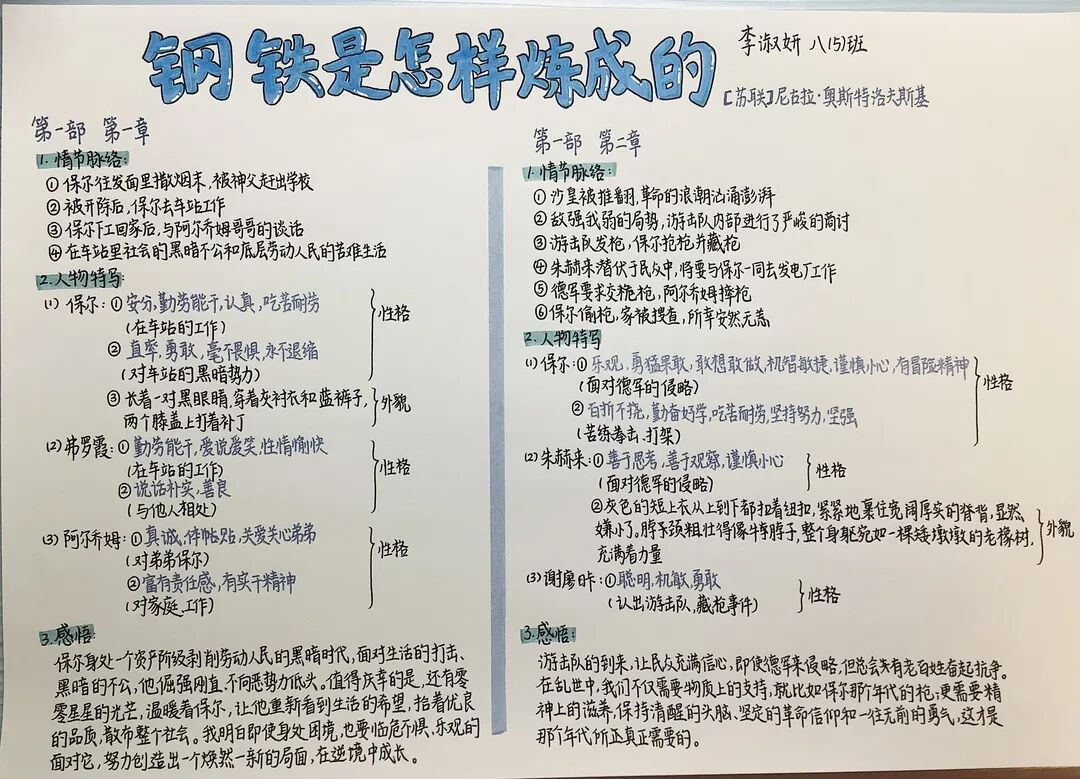 钢铁是怎样炼成的
李淑妍 八(5)班
[苏联]尼古拉·奥斯特洛夫斯基
第一部 第一章
1.情节脉络:
①保尔往发面里撒烟末,被神父赶出学校
②被开除后,保尔去车站工作
③保尔下工回家后,与阿尔乔姆哥哥的谈话
④在车站里社会的黑暗不公和底层劳动人民的苦难生活
2.人物特写:
(1)保尔:①安分,勤劳能干,认真,吃苦耐劳
(在车站的工作)
②直率,勇敢,毫不畏惧,永不退缩
(对车站的黑暗势力)
性格
③长着一对黑眼睛,穿着灰衬衣和蓝裤子,
两个膝盖上打着补丁
外貌
(2)弗罗霞:①勤劳能干,爱说爱笑,性情愉快
(在车站的工作)
②说话朴实,善良
(与他人相处)
性格
(3)阿尔乔姆:①真诚,体帖贴,关爱关心弟弟
(对弟弟保尔)
②富有责任感,有实干精神
(对家庭、工作)
性格
3.感悟:
保尔身处一个资产阶级剥削劳动人民的黑暗时代,面对生活的打击、
黑暗的不公,他倔强刚直,不向恶势力低头。值得庆幸的是,还有零
零星星的光芒,温暖着保尔,让他重新看到生活的希望,抬着优良
的品质,散布整个社会。我明白即使身处困境,也要临危不惧、乐观的
面对它,努力创造出一个焕然一新的局面,在逆境中成长。
第一部 第二章
1.情节脉络:
①沙皇被推翻,革命的浪潮汹涌澎湃
②敌强我弱的局势,游击队内部进行了严峻的商讨
③游击队发枪,保尔抢枪并藏枪
④朱赫来潜伏于民众中,将要与保尔一同去发电厂工作
⑤德军要求交枪,阿尔乔姆摔枪
⑥保尔偷枪,家被搜查,所幸安然无恙
2.人物特写
(1)保尔:①乐观,勇猛果敢,敢想敢做,机智敏捷,谨慎小心,有冒险精神
(面对德军的侵略)
②百折不挠,勤奋好学,吃苦耐劳,坚持努力,坚强
(苦练拳击、打架)
性格
(2)朱赫来:①善于思考,善于观察,谨慎小心
(面对德军的侵略)
性格
②灰色的短上衣从上到下都扣着纽扣,紧紧地裹住宽阔厚实的脊背,显然
嫌小了。脖子颈粗壮得像牛脖子,整个身躯宛如一棵矮墩墩的老橡树,
充满着力量
外貌
(3)谢廖日卡:①聪明,机敏,勇敢
(认出游击队,藏枪事件)
性格
3.感悟:
游击队的到来,让民众充满信心,即使德军来侵略,但总会有老百姓奋起抗争。
在乱世中,我们不仅需要物质上的支持,就比如保尔那个年代的枪;更需要精
神上的滋养,保持清醒的头脑、坚定的革命信仰和一往无前的勇气,这才是
那个年代所正真正需要的。